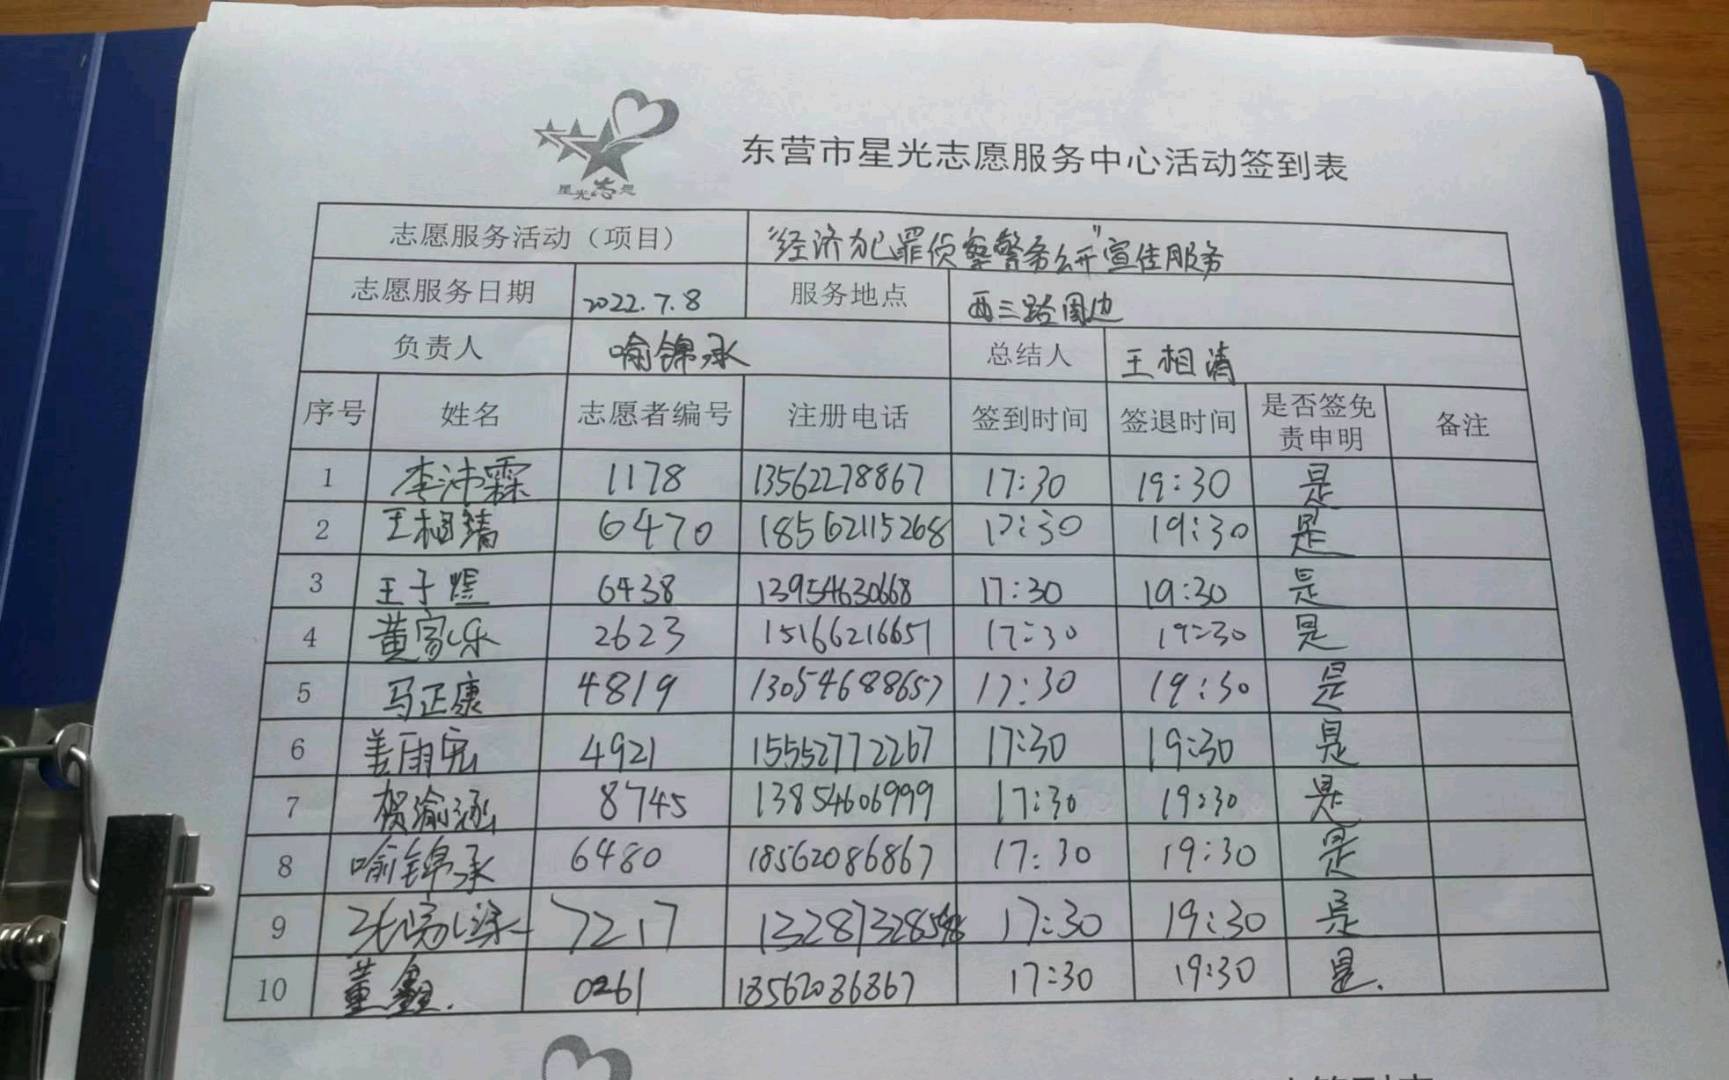 东营市星光志愿服务中心活动签到表
星光志愿
志愿服务活动（项目） "经济犯罪侦察警务公开"宣传服务
志愿服务日期 2022.7.8 服务地点 西三路周边
负责人 喻锦承 总结人 王相清
序号 姓名 志愿者编号 注册电话 签到时间 签退时间 是否签免责申明 备注
1 李沛霖 1178 13562278867 17:30 19:30 是
2 王相清 6470 18562115268 17:30 19:30 是
3 王子煜 6438 13954630668 17:30 19:30 是
4 黄家乐 2623 15166216651 17:30 19:30 是
5 马正康 4819 13054688657 17:30 19:30 是
6 姜雨宏 4921 15552772267 17:30 19:30 是
7 贺渝涵 8745 13854606999 17:30 19:30 是
8 喻锦承 6480 18562086867 17:30 19:30 是
9 7217 17:30 19:30 是
10 董鑫. 0261 18562086867 17:30 19:30 是.